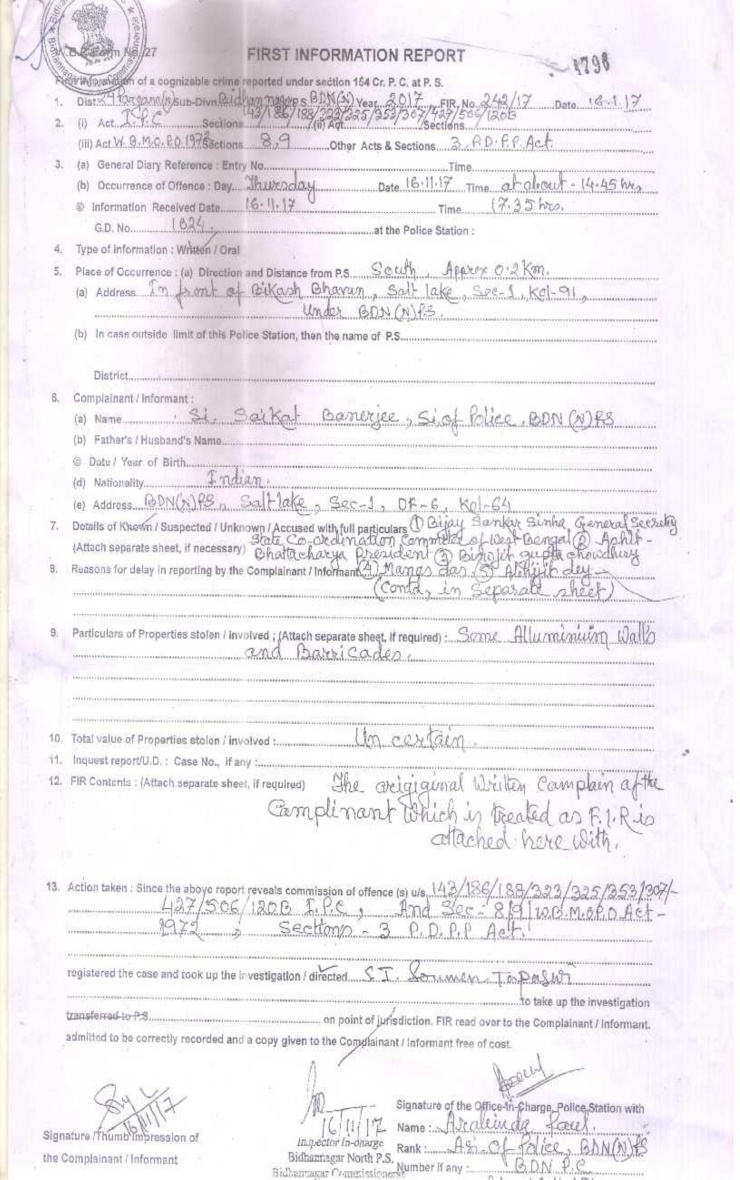 W.B.P. Form No. 27
FIRST INFORMATION REPORT
1796
First Information of a cognizable crime reported under section 154 Cr. P. C. at P. S.
1. Dist. Pargana(N) Sub-Divn. Bidhannagar P.S. BDN(N) Year 2017 FIR No. 242/17 Date 16.1.17
143/186/188/323/325/353/307/427/506/120B
2. (i) Act I.P.C Sections (ii) Act Sections
(iii) Act W.B.M.O.P.O.1972 Sections 8,9 Other Acts & Sections 3 P.D.P.P Act.
3. (a) General Diary Reference : Entry No. Time
(b) Occurrence of Offence : Day Thursday Date 16.11.17 Time at about - 14.45 hrs
© Information Received Date 16.11.17 Time 17.35 hrs.
G.D. No. 1024 at the Police Station :
4. Type of information : Written / Oral
5. Place of Occurrence : (a) Direction and Distance from P.S. South, Approx 0.2 Km.
(a) Address In front of Bikash Bhavan, Salt lake, Sec-1, Kol-91,
Under BDN(N)PS.
(b) In case outside limit of this Police Station, then the name of P.S.
District
6. Complainant / Informant :
(a) Name SI. Saikat Banerjee, SI of Police, BDN(N)PS
(b) Father's / Husband's Name
© Date / Year of Birth
(d) Nationality Indian.
(e) Address BDN(N)PS, Salt lake, Sec-1, DF-6, Kol-64
7. Details of Known / Suspected / Unknown / Accused with full particulars ① Bijay Sankar Sinha, General Secretry
State Co-ordination Committe of West Bengal ②
(Attach separate sheet, if necessary) Bhattacharya President ③ gupta chowdhury
8. Reasons for delay in reporting by the Complainant / Informant ④ Manas das, ⑤ Abhijit dey -
(Contd, in Separate sheet)
9. Particulars of Properties stolen / involved ; (Attach separate sheet, if required) : Some Alluminium Walls
and Barricades.
10. Total value of Properties stolen / involved : Un certain.
11. Inquest report/U.D. : Case No., if any :
12. FIR Contents : (Attach separate sheet, if required) The origiginal Written Complain of the
Complinant which is treated as F.I.R is
attached here with.
13. Action taken : Since the above report reveals commission of offence (s) u/s 143/186/188/323/325/353/307/-
427/506/120B I.P.C, And Sec - 8/9 W.B.M.O.P.O Act -
1972, Sections - 3 P.D.P.P Act.
registered the case and took up the investigation / directed S.I. Soumen Tapaswi
to take up the investigation
transferred to P.S. on point of jurisdiction. FIR read over to the Complainant / Informant.
admitted to be correctly recorded and a copy given to the Complainant / Informant free of cost.
16/11/17
16/11/17
Signature of the Office-in-Charge, Police Station with
Name : Arabinda Paul.
Signature / Thumb Impression of
the Complainant / Informant
Inspector In-charge
Bidhannagar North P.S.
Bidhannagar Commissionerate
Rank : ASI of Police, BDN(N)PS
Number if any : BDN P.C